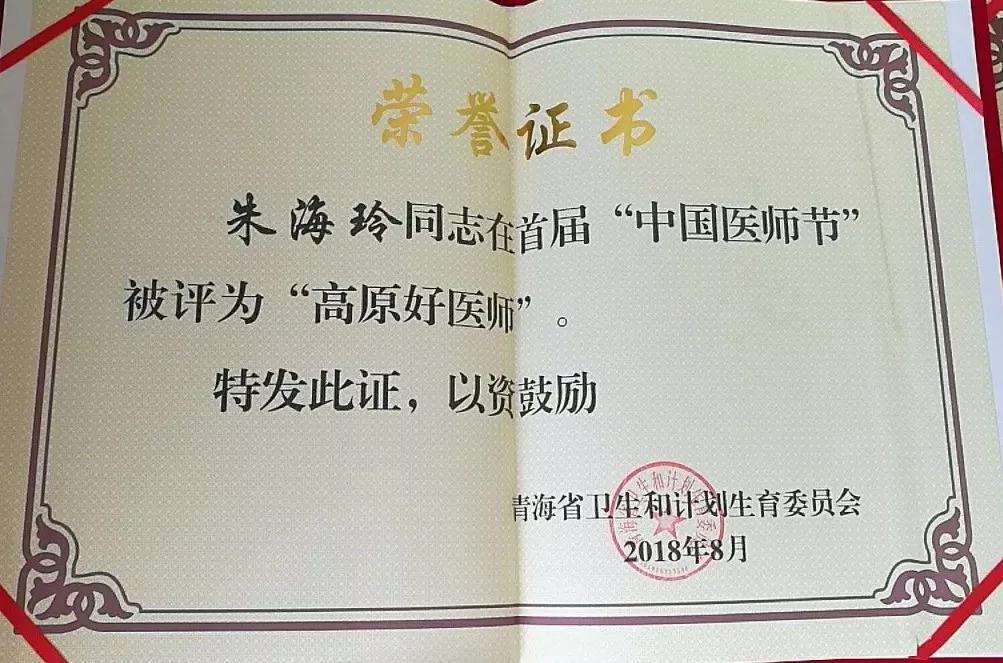 荣誉证书
朱海玲同志在首届“中国医师节”
被评为“高原好医师”。
特发此证，以资鼓励
青海省卫生和计划生育委员会
2018年8月